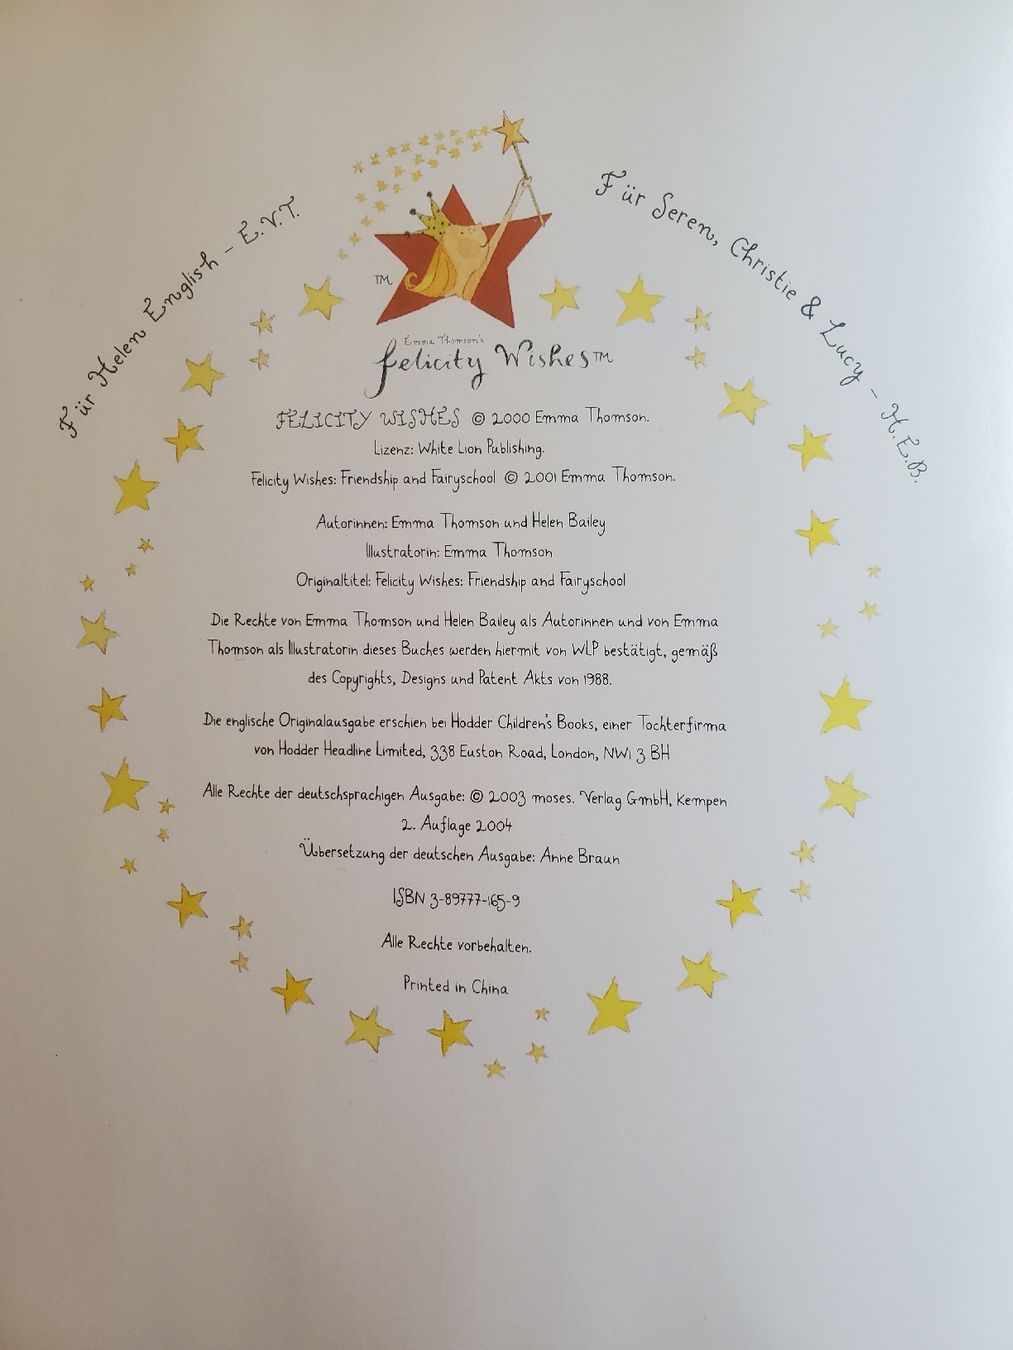 Für Helen English - E.V.T.
Für Seren, Christie & Lucy - H.E.B.
TM
Emma Thomson's
felicity Wishes™
FELICITY WISHES © 2000 Emma Thomson.
Lizenz: White Lion Publishing.
Felicity Wishes: Friendship and Fairyschool © 2001 Emma Thomson.
Autorinnen: Emma Thomson und Helen Bailey
Illustratorin: Emma Thomson
Originaltitel: Felicity Wishes: Friendship and Fairyschool
Die Rechte von Emma Thomson und Helen Bailey als Autorinnen und von Emma
Thomson als Illustratorin dieses Buches werden hiermit von WLP bestätigt, gemäß
des Copyrights, Designs und Patent Akts von 1988.
Die englische Originalausgabe erschien bei Hodder Children's Books, einer Tochterfirma
von Hodder Headline Limited, 338 Euston Road, London, NW1 3 BH
Alle Rechte der deutschsprachigen Ausgabe: © 2003 moses. Verlag GmbH, Kempen
2. Auflage 2004
Übersetzung der deutschen Ausgabe: Anne Braun
ISBN 3-89777-165-9
Alle Rechte vorbehalten.
Printed in China